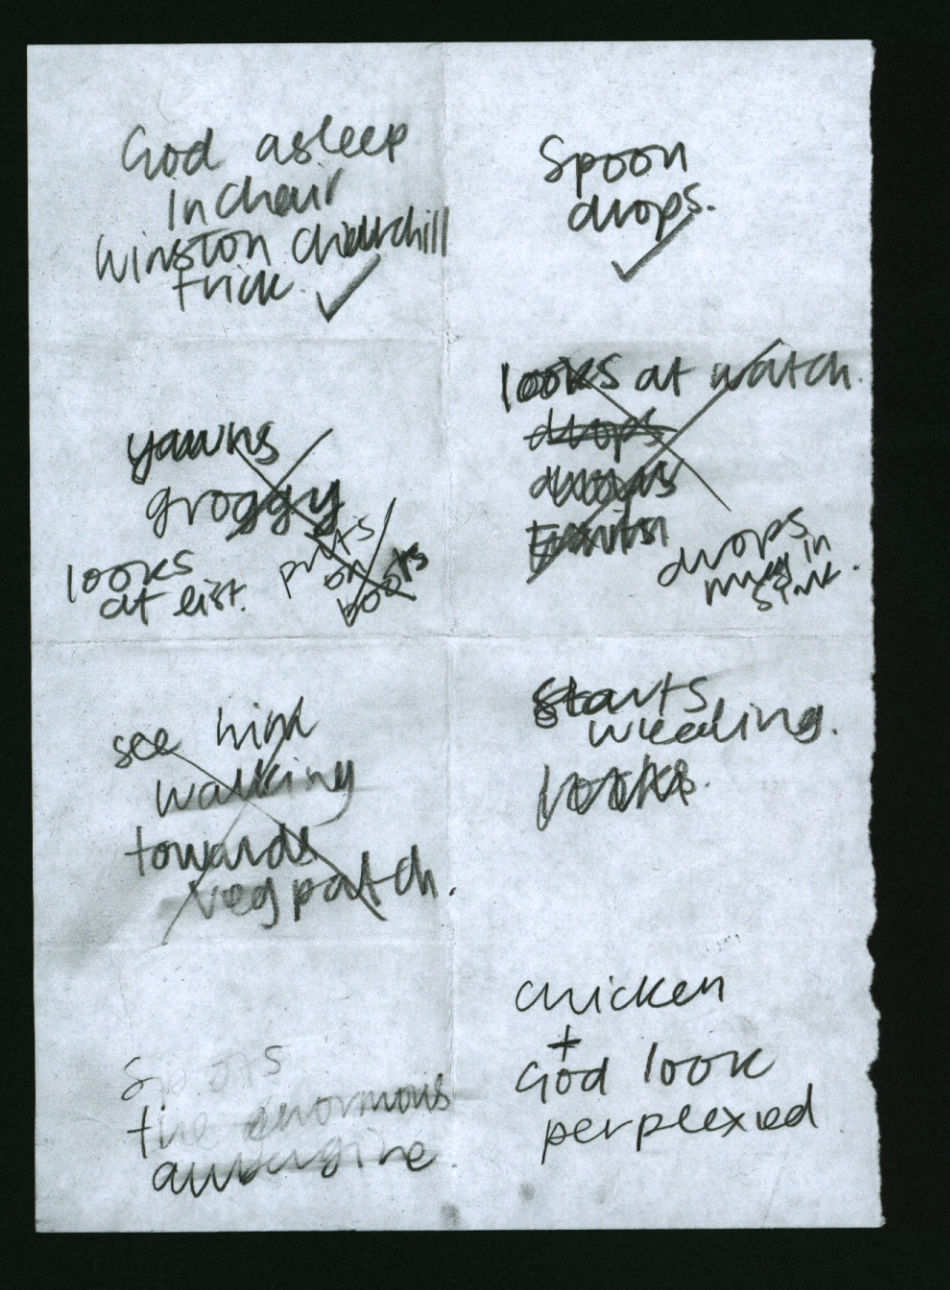 God asleep
In chair
Winston Churchill
trick.
Spoon
drops.
yawns
groggy
looks
at list.
puts
on
boots
looks at watch.
drops
drops
mug in
sink.
see him
walking
towards
veg patch.
starts
weeding.
looks.
Spots
the enormous
aubergine.
chicken
+
God look
perplexed